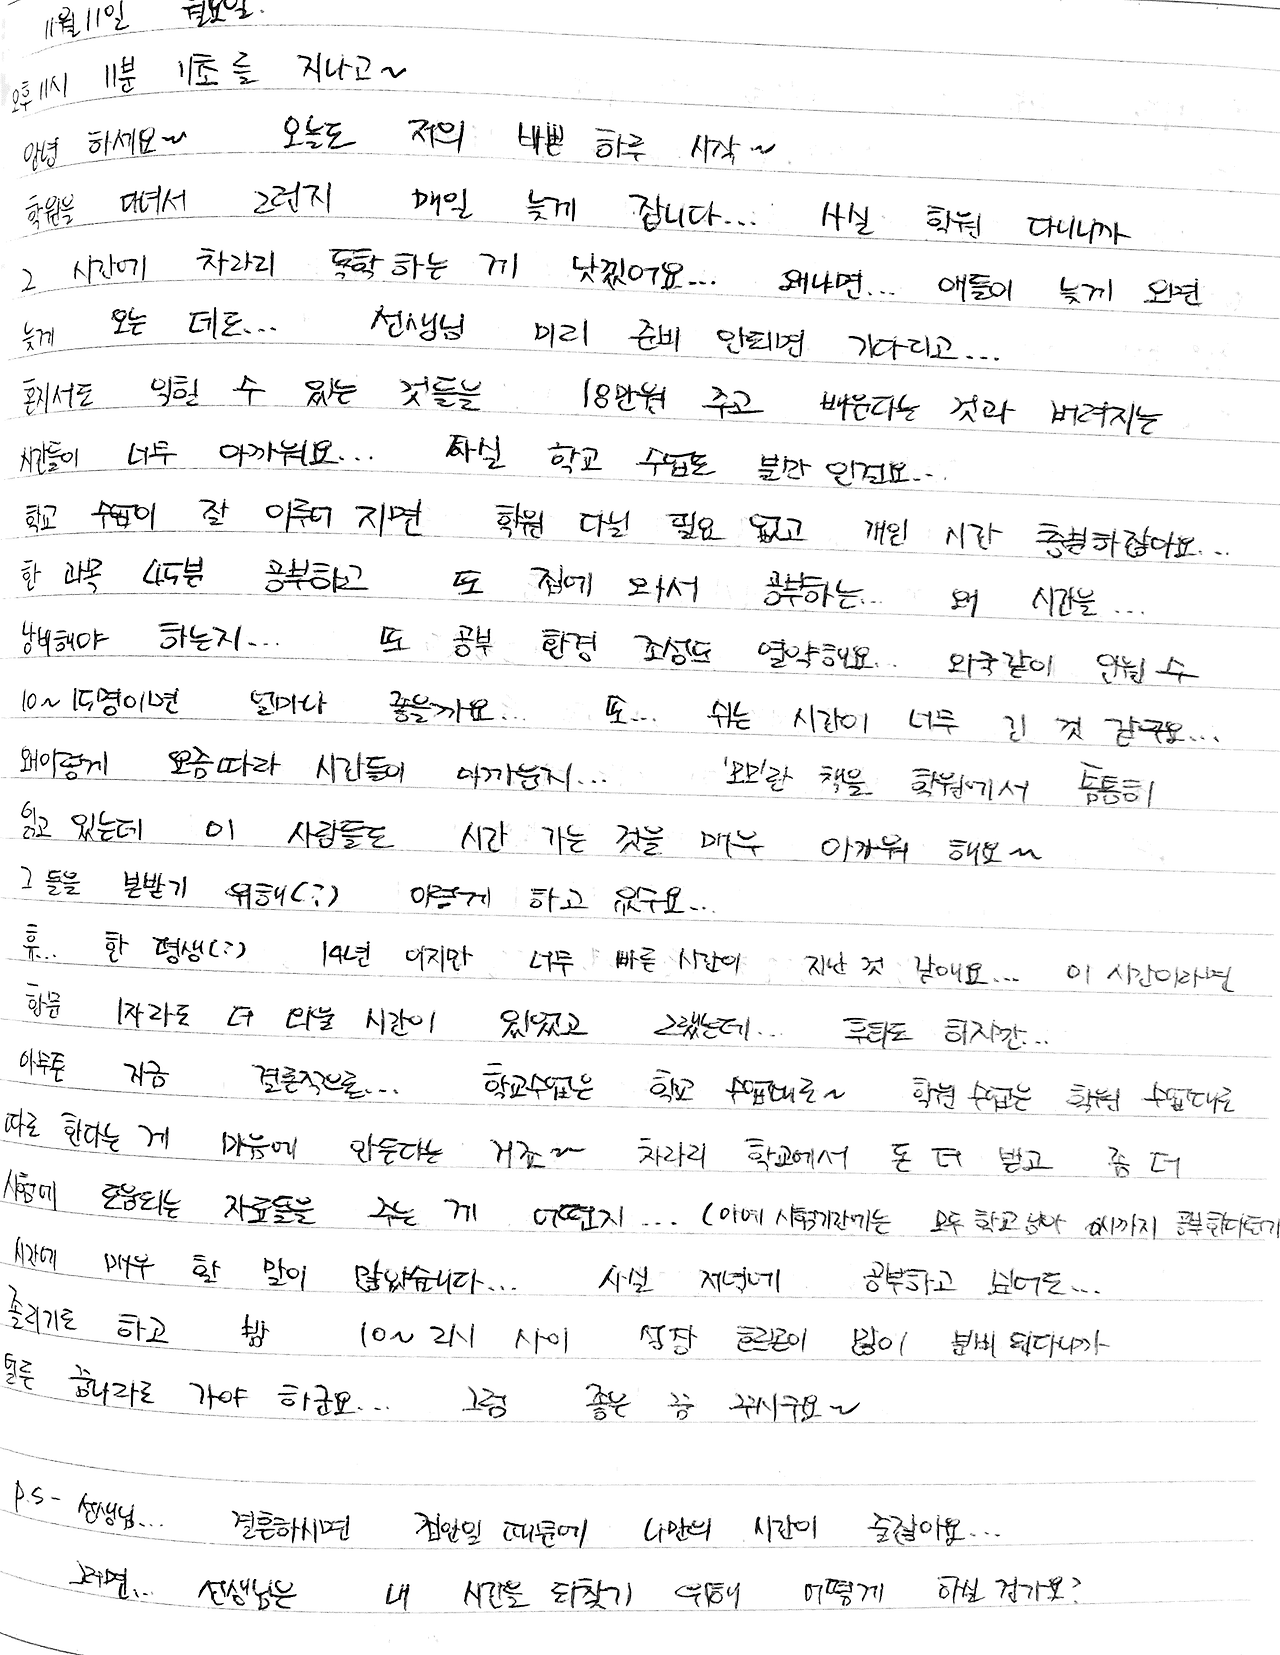 11월 11일 월요일.
오후 11시 11분 11초를 지나고~
안녕 하세요~ 오늘도 저의 바쁜 하루 시작~
학원을 다녀서 그런지 매일 늦게 잡니다... 사실 학원 다니니까
그 시간에 차라리 독학하는 게 낫겠어요... 왜냐면... 애들이 늦게 오면
늦게 오는 데로... 선생님 미리 준비 안되면 기다리고...
혼자서도 익힐 수 있는 것들을 18만원 주고 배운다는 것과 버려지는
시간들이 너무 아까워요... 사실 학교 수업도 불만 인걸요...
학교 수업이 잘 이루어 지면 학원 다닐 필요 없고 개인 시간 충분하잖아요...
한 과목 45분 공부하고 또 집에 와서 공부하는... 왜 시간을...
낭비해야 하는지... 또 공부 환경 조성도 열악해요... 외국같이 인원 수
10~15명이면 얼마나 좋을까요... 또... 쉬는 시간이 너무 긴 것 같구요...
왜이렇게 요즘따라 시간들이 아까운지... '모모'란 책을 학원에서 틈틈히
읽고 있는데 이 사람들도 시간 가는 것을 매우 아까워 해요~
그들을 본받기 위해(?) 이렇게 하고 있구요...
휴... 한 평생(?) 14년 이지만 너무 빠른 시간이 지난 것 같애요... 이 시간이라면
학문 1자라도 더 배울 시간이 있었고 그랬는데... 후회도 하지만...
아무튼 지금 결론적으로... 학교수업은 학교 수업대로~ 학원 수업은 학원 수업대로
따로 한다는 게 마음에 안든다는 거죠~ 차라리 학교에서 돈 더 받고 좀 더
시험에 도움되는 자료들을 주는 게 어떨지... (아예 시험기간에는 모두 학교 남아 시까지 공부한다던가
시간에 매우 할 말이 많았습니다... 사실 저녁에 공부하고 싶어도...
졸리기도 하고 밤 10~2시 사이 성장 호르몬이 많이 분비 된다니까
얼른 꿈나라로 가야 하군요... 그럼 좋은 꿈 꾸시구요~
P.S- 선생님... 결혼하시면 집안일 때문에 나만의 시간이 줄잖아요...
그러면... 선생님은 내 시간을 되찾기 위해 어떻게 하실 건가요?